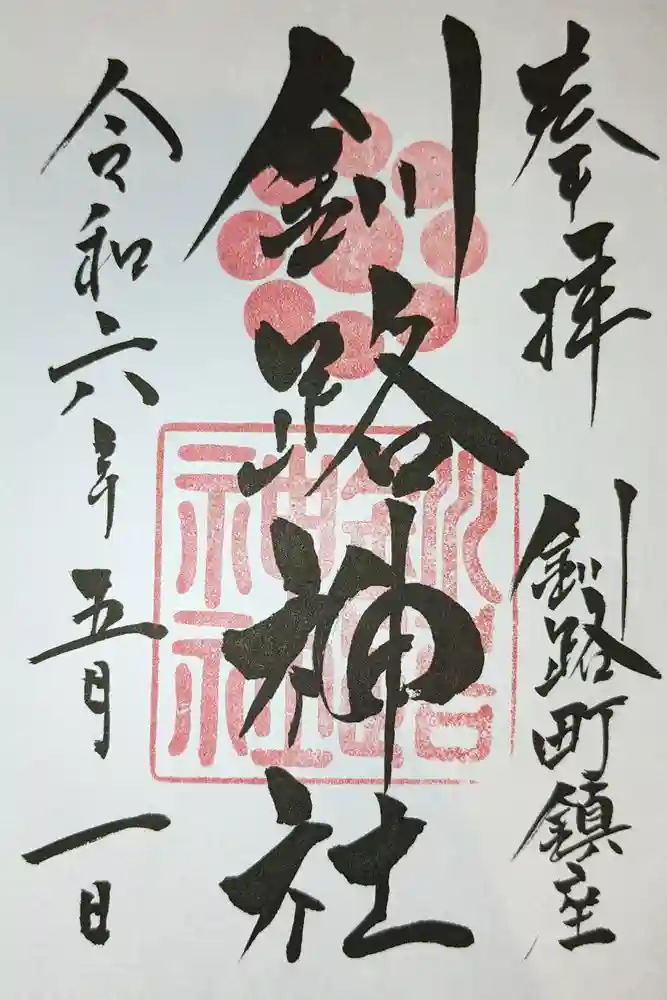 奉拝
釧路町鎮座
釧路神社
釧路
神社
令和六年五月一日